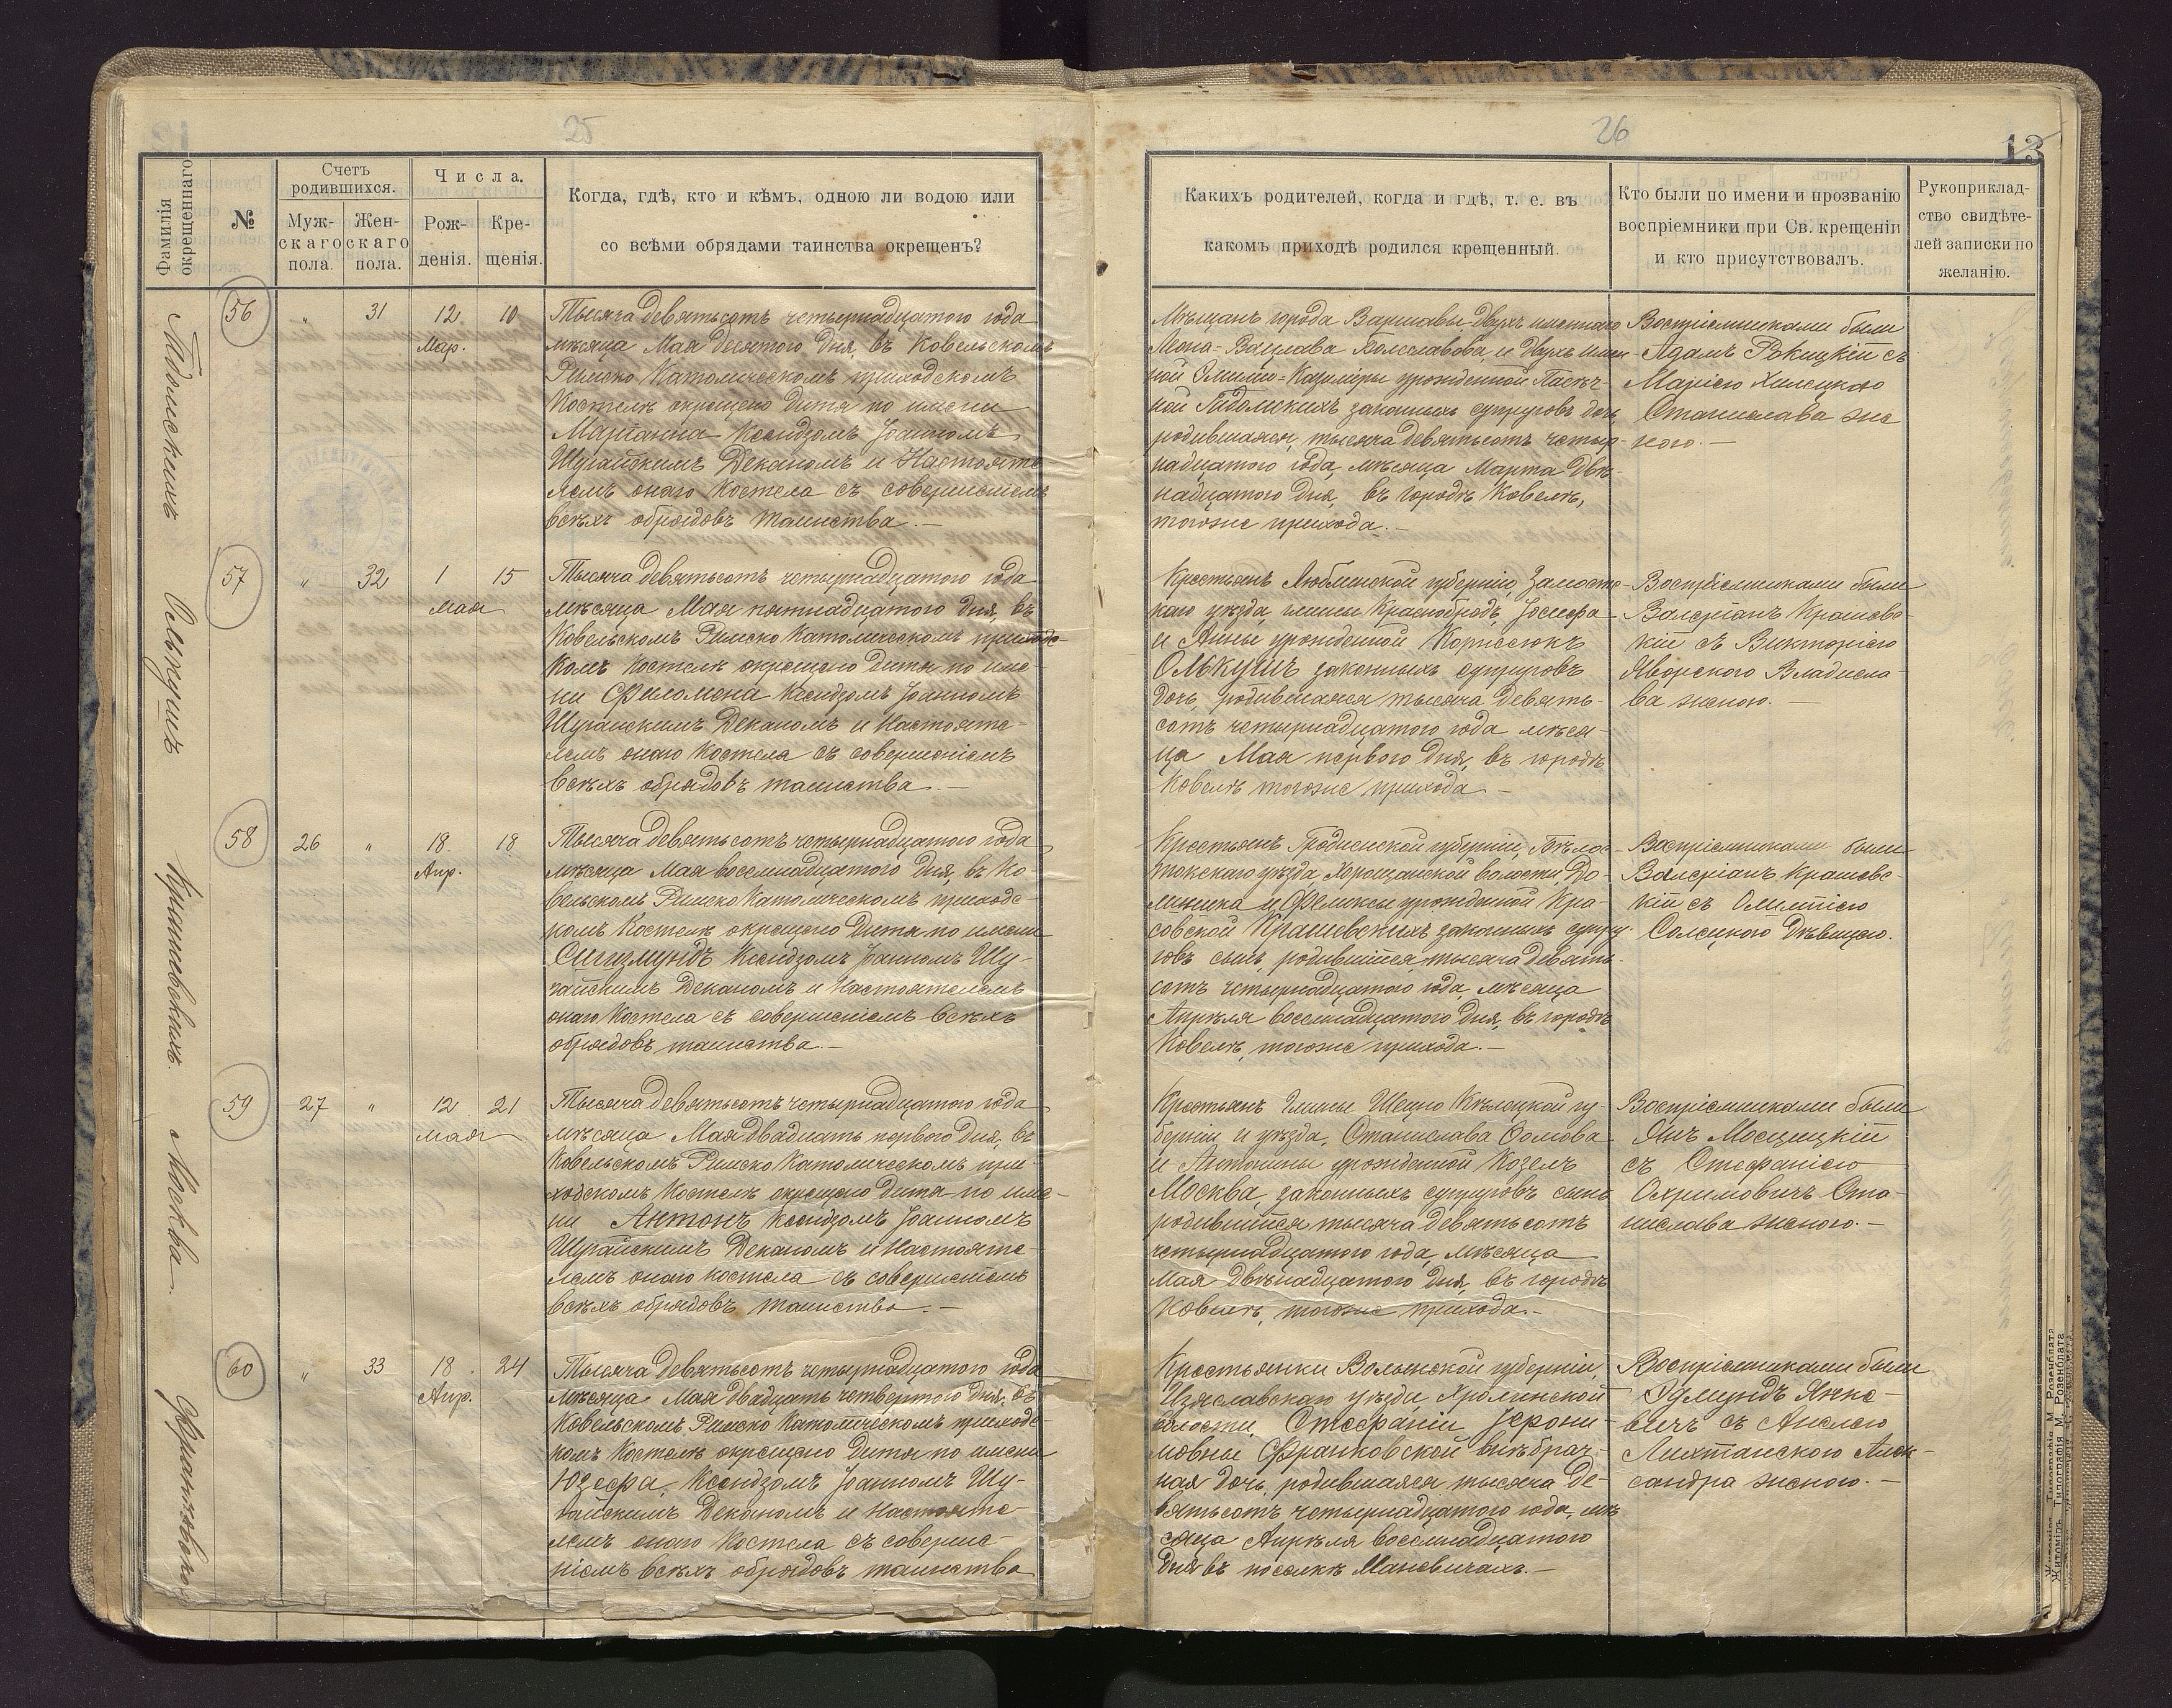 25
Фамилія окрещеннаго
№
Счетъ родившихся.
Муж-
скаго
пола.
Жен-
скаго
пола.
Числа.
Рож-
денія.
Кре-
щенія.
Когда, гдѣ, кто и кѣмъ, одною ли водою или
со всѣми обрядами таинства окрещенъ?
56
„
31
12
Мар.
10
Тысяча девятьсотъ четырнадцатого года
мѣсяца Мая десятого дня, въ Ковельскомъ
Римско Католическомъ приходскомъ
Костелѣ окрещено дитя по имени
Марianna Ксендзомъ Іоанномъ
Деканомъ и Настояте-
лемъ онаго Костела съ совершеніемъ
всѣхъ обрядовъ таинства.—
57
„
32
1
мая
15
Тысяча девятьсотъ четырнадцатого года
мѣсяца Мая пятнадцатого дня, въ
Ковельскомъ Римско Католическомъ приходс-
комъ Костелѣ окрещено дитя по име-
ни Филомена Ксендзомъ Іоанномъ
Деканомъ и Настояте-
лемъ онаго Костела съ совершеніемъ
всѣхъ обрядовъ таинства.—
Олькушъ
58
26
„
18
Апр.
18
Тысяча девятьсотъ четырнадцатого года
мѣсяца Мая восемнадцатого дня, въ Ко-
вельскомъ Римско Католическомъ приходс-
комъ Костелѣ окрещено дитя по имени
Сигизмундъ Ксендзомъ Іоанномъ
Деканомъ и Настоятелемъ
онаго Костела съ совершеніемъ всѣхъ
обрядовъ таинства.—
Крашевскихъ.
59
27
„
12
мая
21
Тысяча девятьсотъ четырнадцатого года
мѣсяца Мая двадцать первого дня, въ
Ковельскомъ Римско Католическомъ при-
ходскомъ Костелѣ окрещено дитя по име-
ни Антонъ Ксендзомъ Іоанномъ
Деканомъ и Настояте-
лемъ онаго костела съ совершеніемъ
всѣхъ обрядовъ таинства.—
Москва.
60
„
33
18
Апр.
24
Тысяча девятьсотъ четырнадцатого года
мѣсяца Мая двадцать четвертого дня, въ
Ковельскомъ Римско Католическомъ приходс-
комъ Костелѣ окрещено дитя по имени
Юзефа, Ксендзомъ Іоанномъ
Деканомъ и Настояте-
лемъ онаго Костела съ соверше-
ніемъ всѣхъ обрядовъ таинства
26
13
Какихъ родителей, когда и гдѣ, т. е. въ
какомъ приходѣ родился крещенный.
Кто были по имени и прозванію
воспріемники при Св. крещеніи
и кто присутствовалъ.
Рукоприклад-
ство свидѣте-
лей записки по
желанію.
Мѣщанъ города Варшавы двухъ именнаго
Леона-Вацлава Болеславова и двухъ имен-
ной урожденной
законныхъ супруговъ дочь,
родившаяся, тысяча девятьсотъ четыр-
надцатого года, мѣсяца Марта двѣ-
надцатого дня, въ городѣ Ковелѣ,
тогоже прихода.—
Воспріемниками были
Адамъ Рокицкій съ
Маріею
Станислава же-
ною.—
Крестьянъ Люблинской губерніи, Замостс-
каго уѣзда, гмины Краснобродъ, Іосифа
и Анны урожденной Корнелюкъ
Олькушъ законныхъ супруговъ
дочь, родившаяся тысяча девять-
сотъ четырнадцатого года мѣся-
ца Мая первого дня, въ городѣ
Ковелѣ тогоже прихода.—
Воспріемниками были
Валеріанъ Крашевс-
кій съ Викторіею
Яворского Владисла-
ва женою.—
Крестьянъ Гродненской губерніи, Бѣлос-
токскаго уѣзда Хорощанской волости, До-
миника и Феликсы урожденной Кра-
совской Крашевскихъ законныхъ супру-
говъ сынъ, родившійся, тысяча девять-
сотъ четырнадцатого года, мѣсяца
Апрѣля восемнадцатого дня, въ городѣ
Ковелѣ, тогоже прихода.—
Воспріемниками были
Валеріанъ Крашевс-
кій съ Олимпіею
дѣвицею.
Крестьянъ гмины Кѣлецкой гу-
берніи и уѣзда, Станислава
и Антонины урожденной Козелъ
Москва, законныхъ супруговъ сынъ
родившійся тысяча девятьсотъ
четырнадцатого года, мѣсяца
Мая двѣнадцатого дня, въ городѣ
Ковелѣ, тогоже прихода.—
Воспріемниками были
Янъ Мосцицкій
съ Стефаніею
Охримовичъ Ста-
нислава женою.—
Крестьянки Волынской губерніи,
Изяславскаго уѣзда,
волости, Стефаніи Іерони-
мовны Франковской внѣбрач-
ная дочь, родившаяся тысяча де-
вятьсотъ четырнадцатого года, мѣ-
сяца Апрѣля восемнадцатого
дня въ поселкѣ Маневичахъ.—
Воспріемниками были
Эдмундъ Янке-
вичъ съ Анелею
Алек-
сандра женою.—
Житоміръ. Типографія М. Розенблата